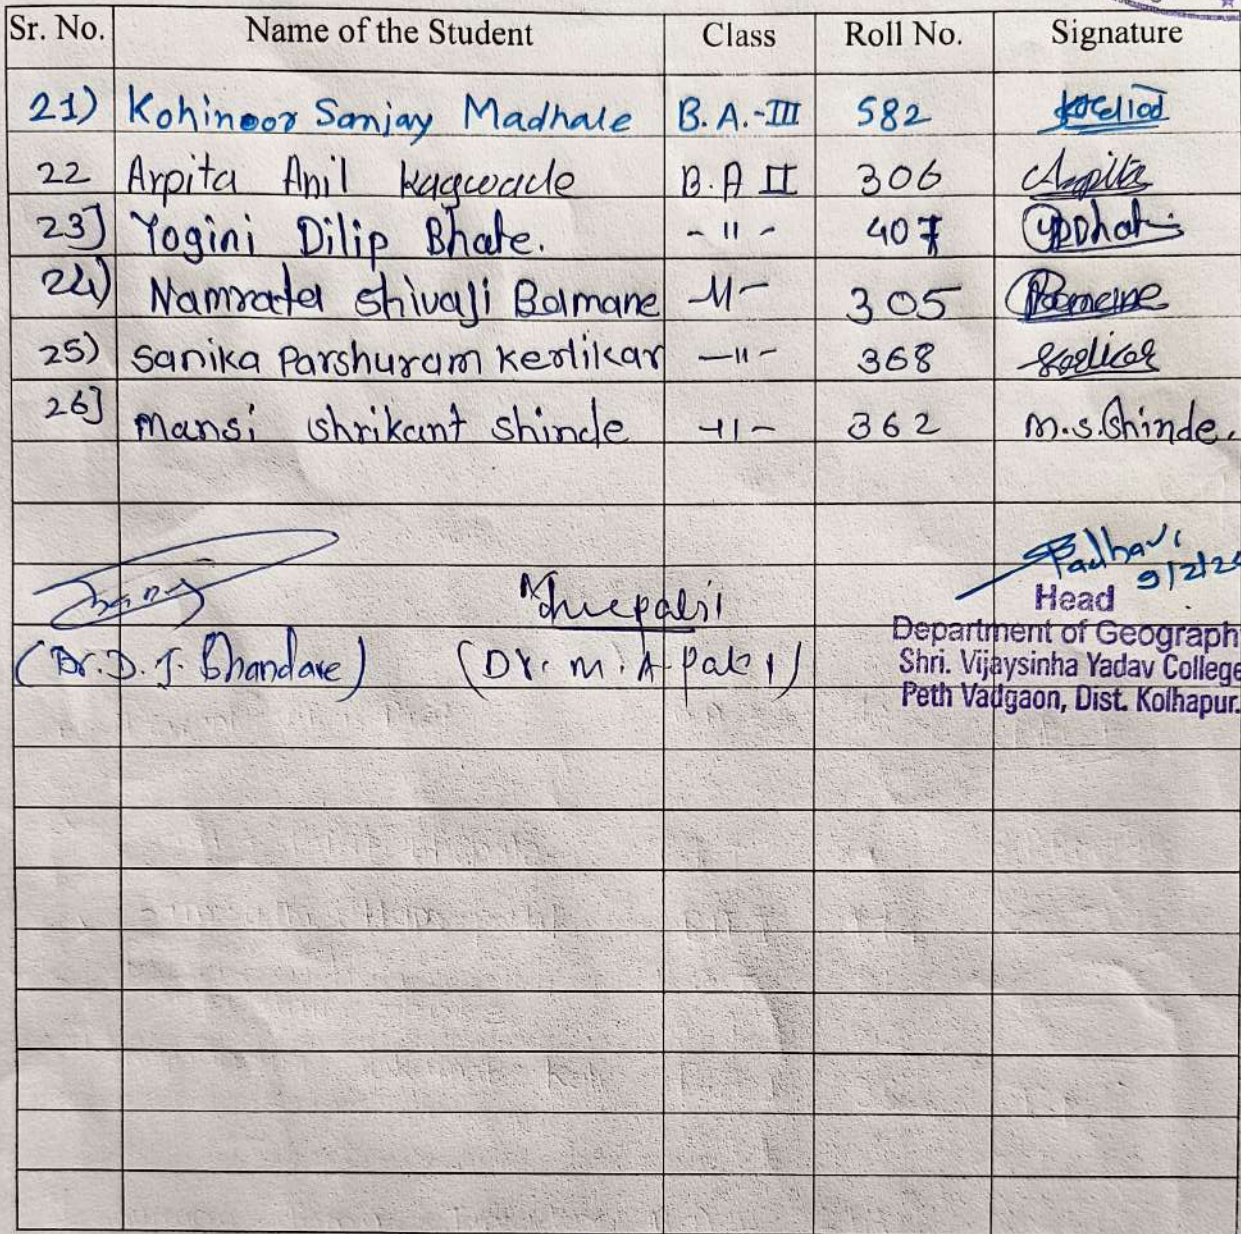 Sr. No. Name of the Student Class Roll No. Signature
21) Kohinoor Sanjay Madhale B.A.-III 582
22 Arpita Anil Kagwade B.A II 306 Arpita
23] Yogini Dilip Bhate. -11- 407
24) Namrata Shivaji Bamane -11- 305 Bamane
25) Sanika Parshuram Kerlikar -11- 368
26] Mansi Shrikant Shinde -11- 362 M.S.Shinde.
9/2/24
Head
(Dr. D. J. Bhandare) (Dr. M. A. Patil) Department of Geograph
Shri. Vijaysinha Yadav College
Peth Vadgaon, Dist. Kolhapur.